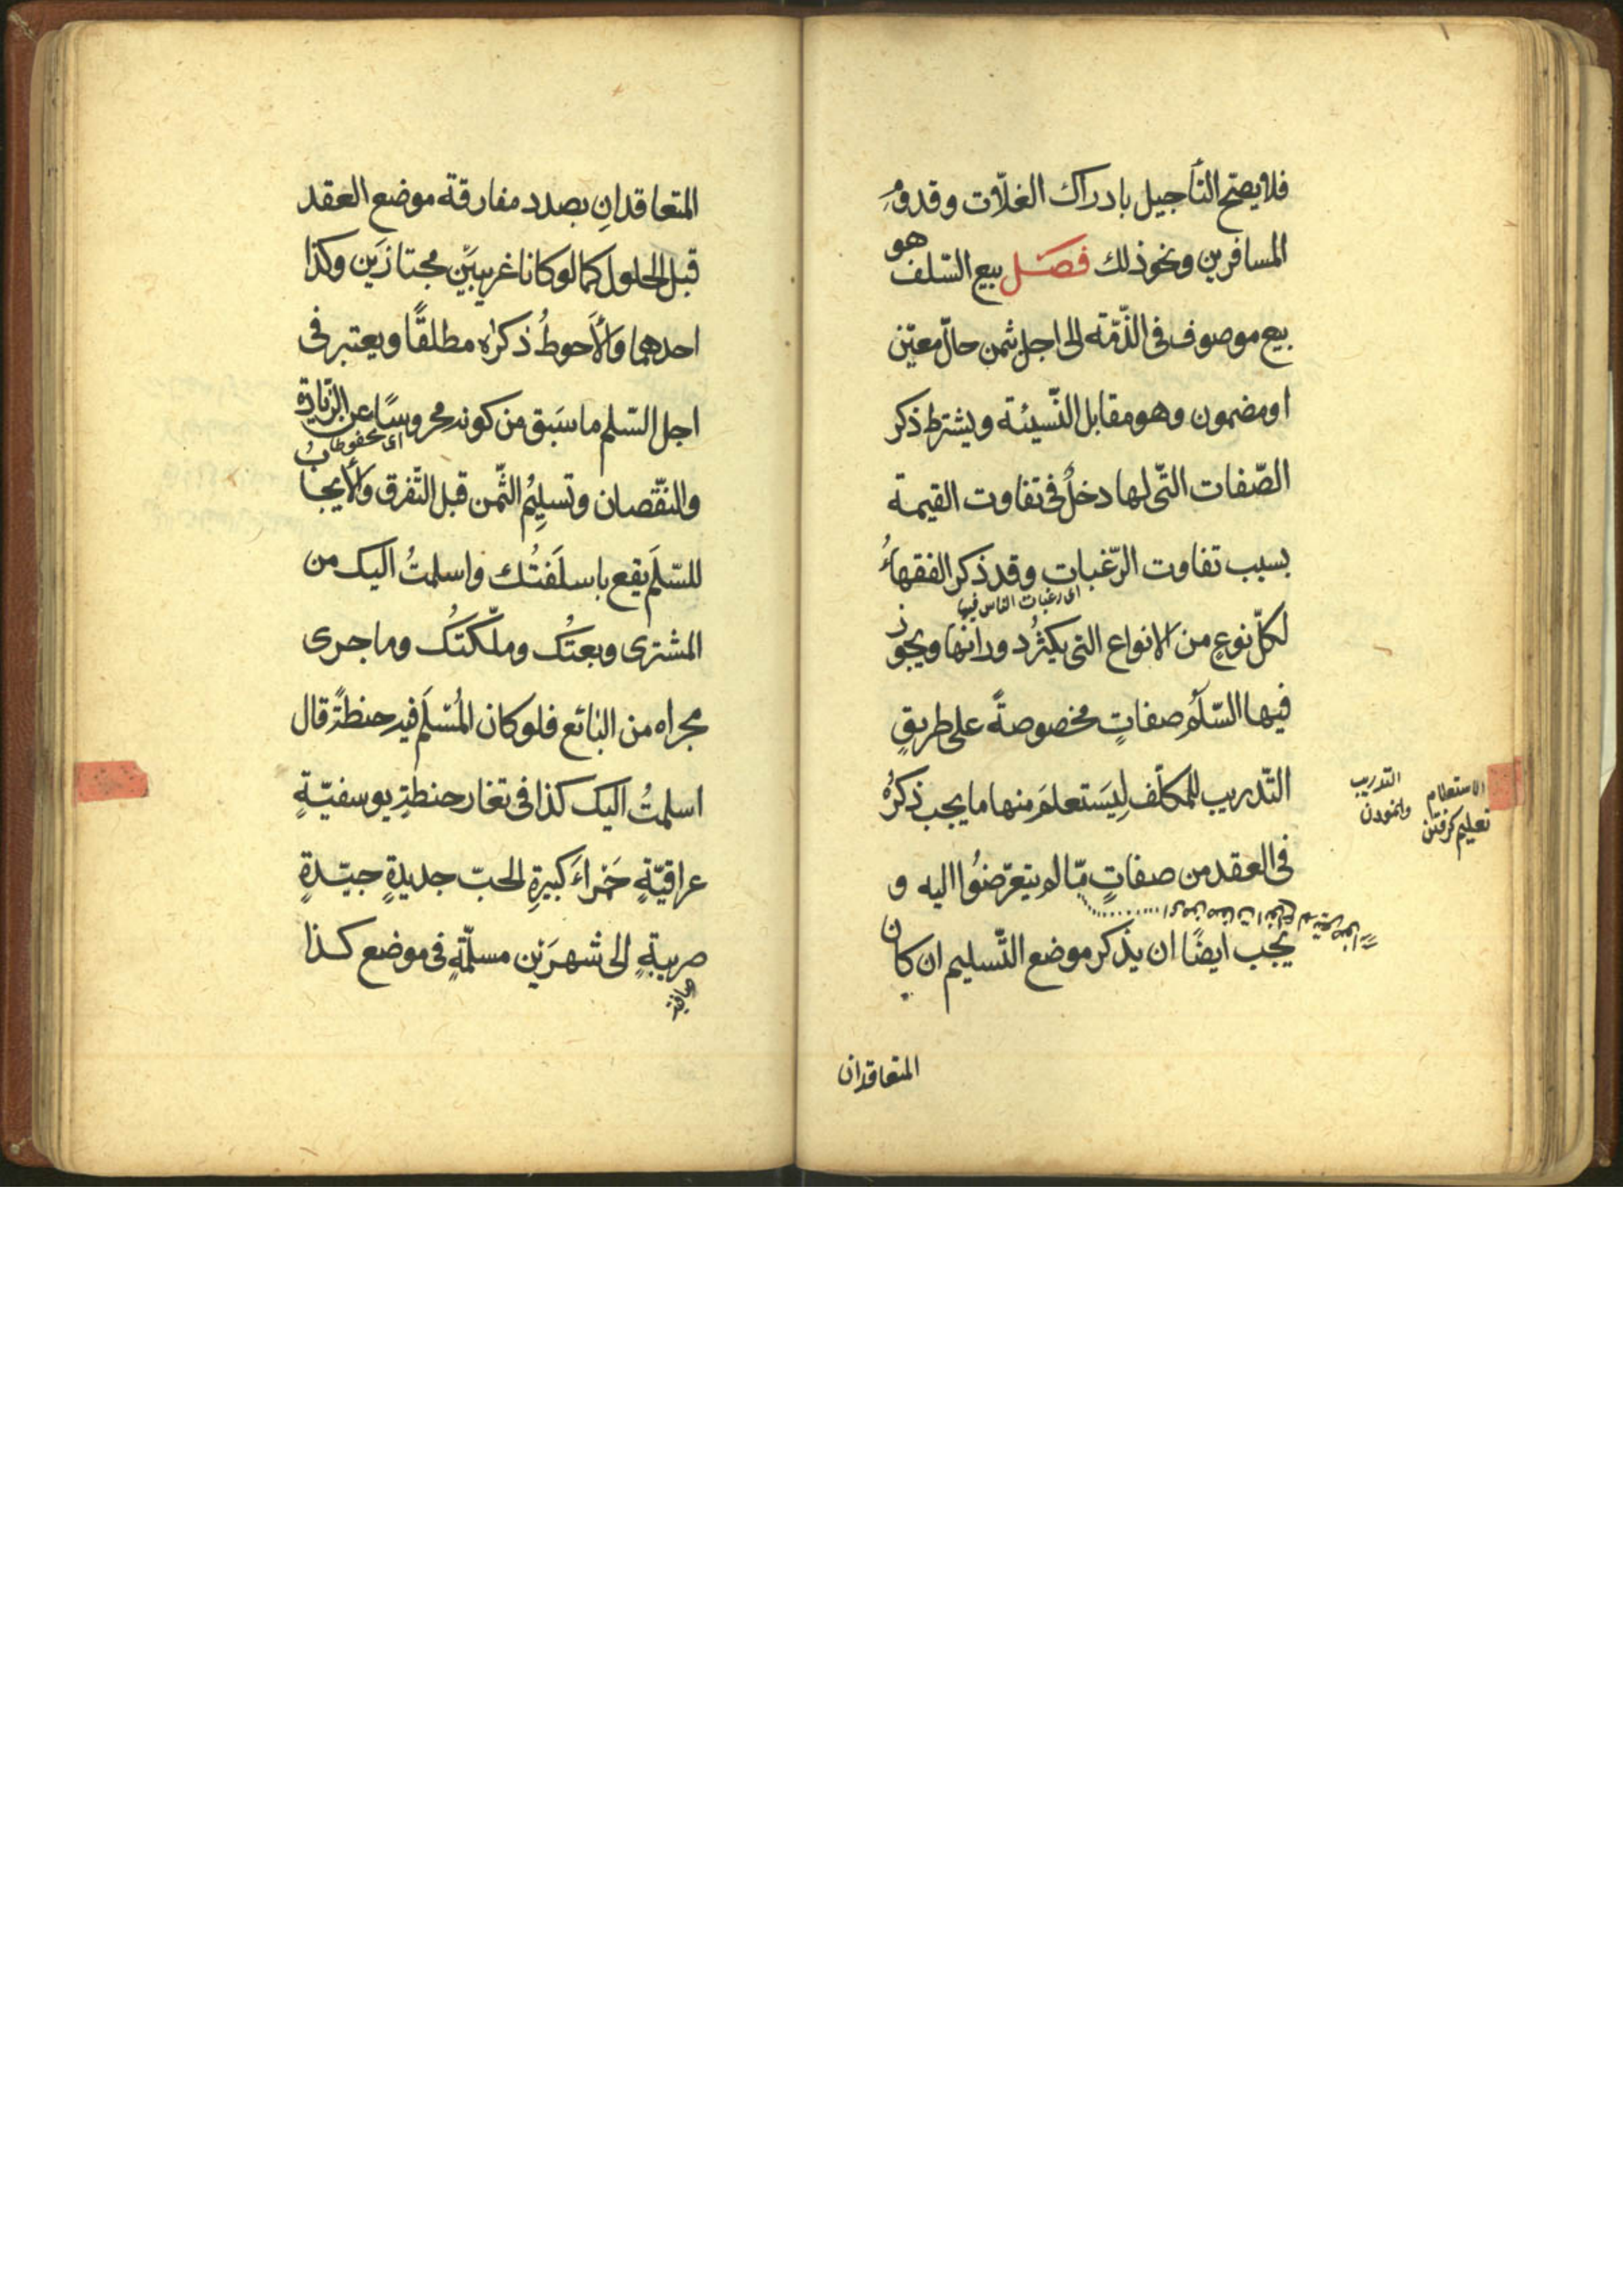 فلا يصحّ التأجيل بادراك الغلّات وقدومِ
المسافرين ونحو ذلك فصل بيع السّلف هو
بيع موصوف فى الذّمّة الى اجل بثمن حالّ معيّن
او مضمون وهو مقابل النّسيئة ويشترط ذكر
الصّفات الّتى لها دخلٌ فى تفاوت القيمة
بسبب تفاوت الرّغبات وقد ذكر الفقهاءُ
اى رغبات الناس فيها
لكلّ نوعٍ من الانواع التى يكثرُ دورانها ويجوز
فيها السّلَمُ صفاتٍ مخصوصةً على طريقِ
التّدريب للمكلّف لِيَستعلمَ منها ما يجب ذكرُه
التدريب
وانمودن
الاستعلام
تعليم گرفتن
فى العقد من صفاتٍ ممّا لم يتعرّضوُا اليه و
يجب ايضًا ان يذكر موضع التّسليم ان كان
المتعاقدان
المتعاقدانِ بصدد مفارقة موضع العقد
قبل الحلول كما لو كانا غريبَيْنِ مجتازَين وكذا
احدهما والأَحوطُ ذكرُه مطلقًا ويعتبر فى
اجل السّلم ما سَبَق من كونه محروسًا عن الزّيادة
اى محفوظا
والنّقصان وتسليمُ الثّمن قبل التّفرق والأيجابُ
للسّلَم يقع باسلَفتُك واسلمتُ اليك من
المشترى وبعتُك وملّكتُك وما جرى
مجراه من البائع فلو كان المُسْلَم فيه حنطةً قال
اسلمتُ اليك كذا فى تغار حنطةٍ يوسفيّةٍ
عراقيّةٍ حَمراءَ كبيرةِ الحبّ جديدةٍ جيّدةٍ
صربيةٍ الى شهرَين مسلّمةٍ فى موضع كذا
صافية